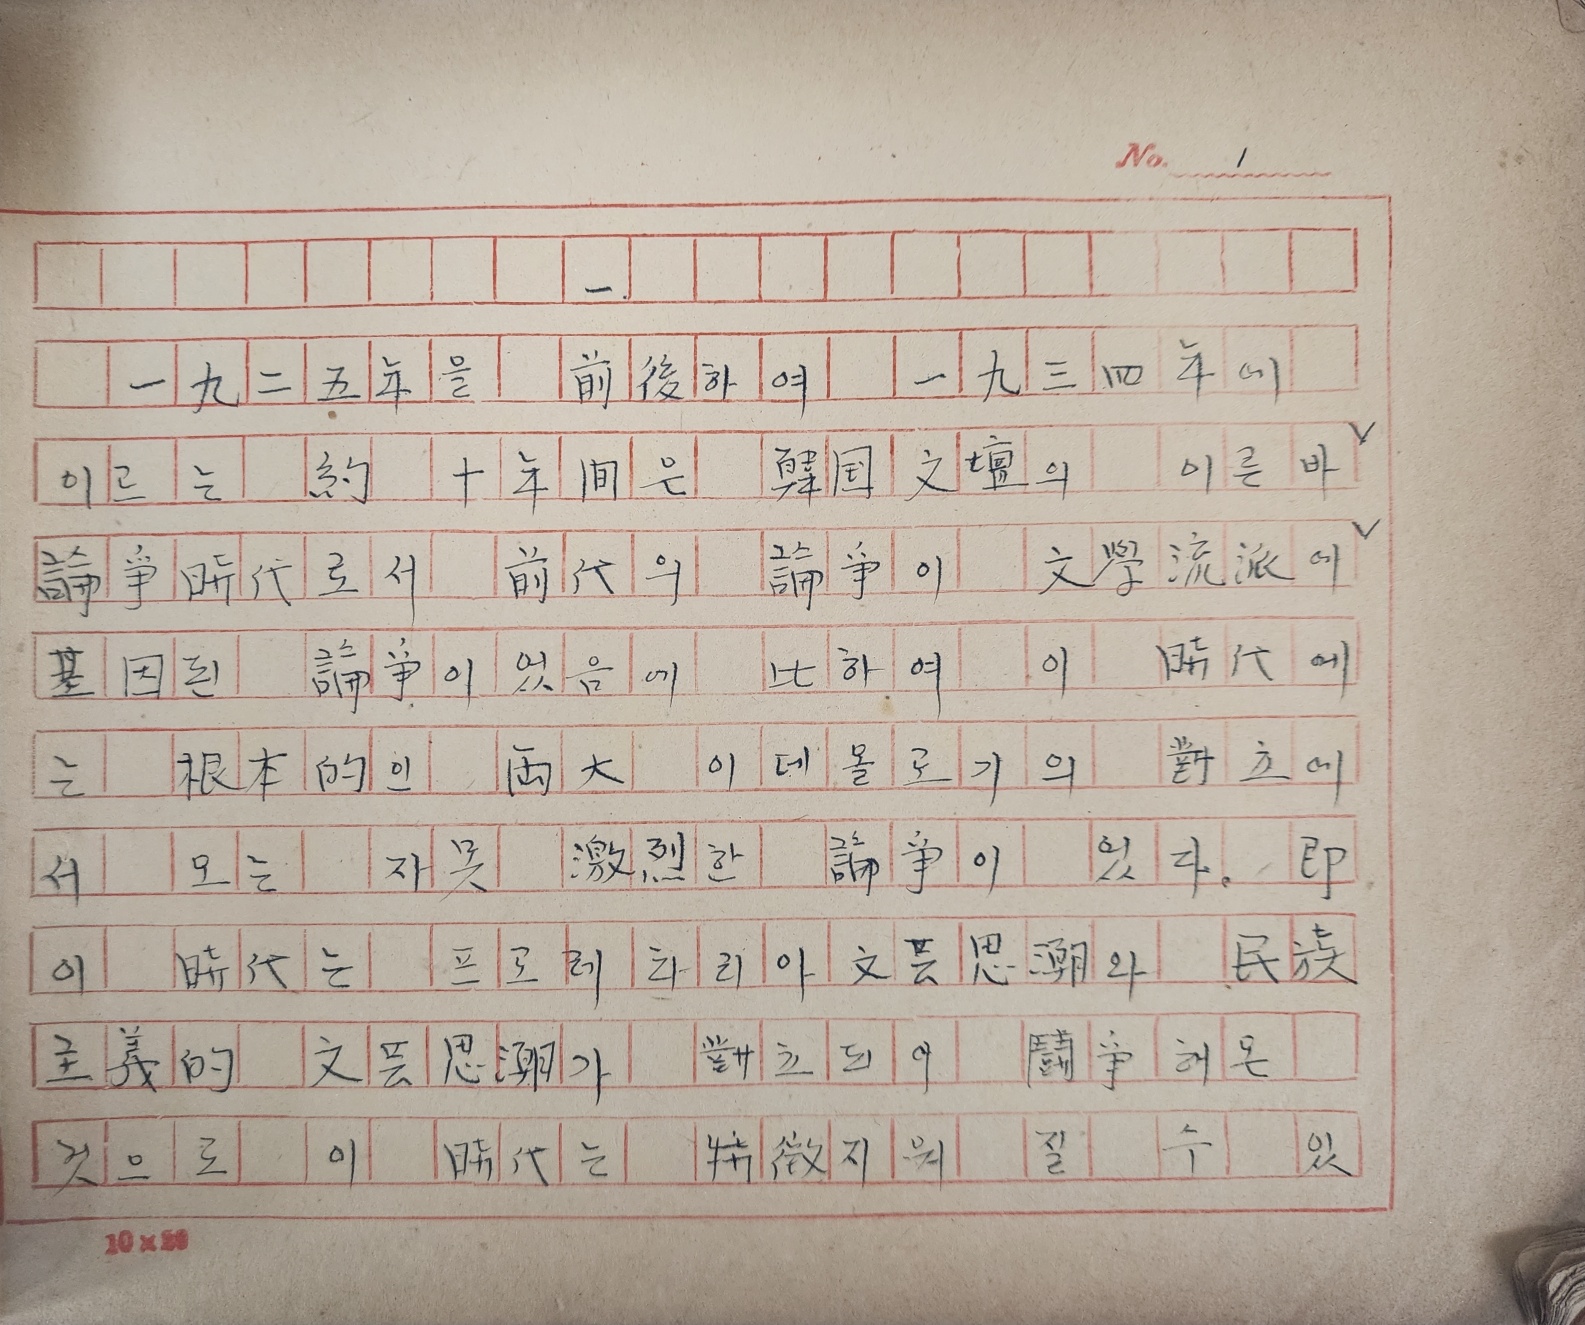 No. 1
一.
一九二五年을 前後하여 一九三四年에
이르는 約 十年間은 韓国文壇의 이른바
論爭時代로서 前代의 論爭이 文學流派에
基因된 論爭이었음에 比하여 이 時代에
는 根本的인 両大 이데몰로기의 對立에
서 오는 자못 激烈한 論爭이 있다. 即
이 時代는 프로레타리아文芸思潮와 民族
主義的 文芸思潮가 對立되어 鬪爭해온
것으로 이 時代는 特徵지워 질 수 있
10×20